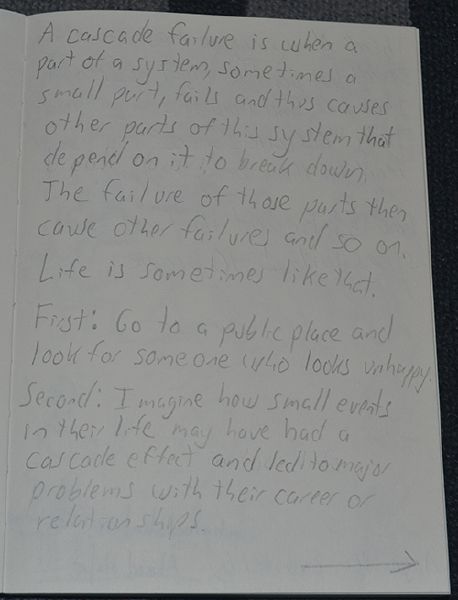 A cascade failure is when a
part of a system, sometimes a
small part, fails and thus causes
other parts of this system that
depend on it to break down.
The failure of those parts then
cause other failures and so on.
Life is sometimes like that.
First: Go to a public place and
look for someone who looks unhappy.
Second: Imagine how small events
in their life may have had a
cascade effect and led to major
problems with their career or
relationships.